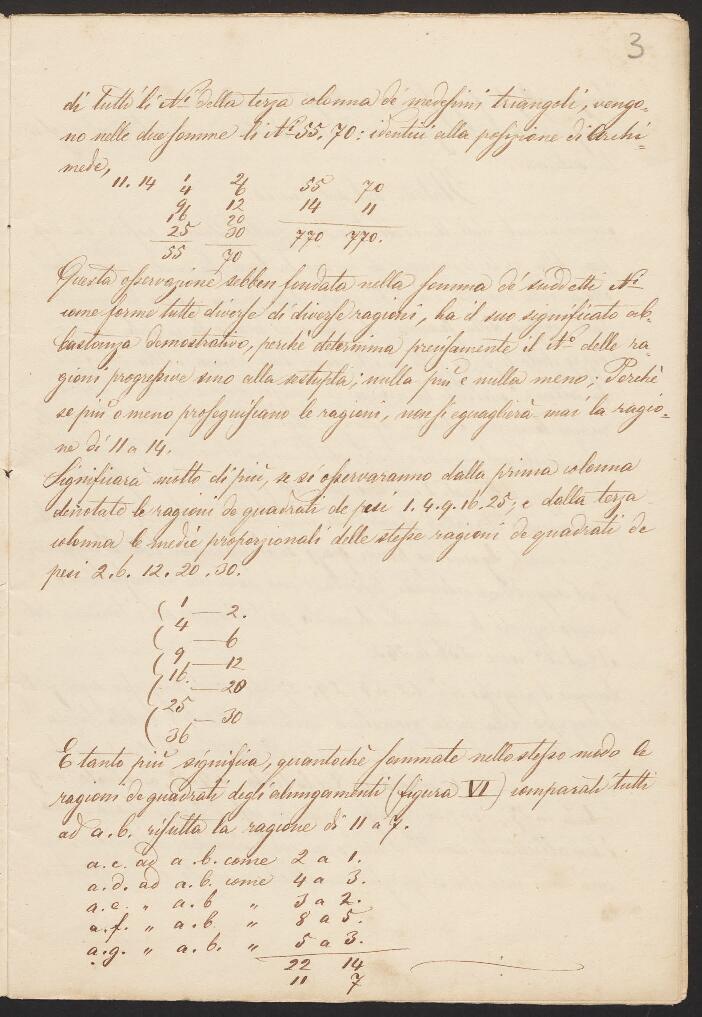 3
di tutti li N.i della terza colonna de' medesimi triangoli, vengo=
no nelle due somme li N.i 55. 70: identici alla posizione di Archi=
mede,
11. 14 1 2 55 70
4 6 14 11
9 12 770 770.
16 20
25 30
55 70
Questa osservazione sebben fondata nella somma de' suddetti N.i
come forme tutte diverse di diverse ragioni, ha il suo significato ab=
bastanza demostrativo, perchè determina precisamente il N.o delle ra=
gioni progressive sino alla sestupla; nulla più e nulla meno; Perchè
se più o meno proseguissano le ragioni, non si eguaglierà mai la ragio=
ne di 11 a 14.
Significarà molto di più, se si osservaranno dalla prima colonna
denotate le ragioni de quadrati de pesi 1. 4. 9. 16. 25; e dalla terza
colonna le medie proporzionali delle stesse ragioni de quadrati de
pesi 2. 6. 12. 20. 30.
( 1 — 2.
( 4 — 6
( 9 — 12
( 16. — 20
( 25 — 30
36
E tanto più significa, quantochè sommate nello stesso modo le
ragioni de quadrati degli alungamenti (figura VI) comparati tutti
ad a. b. risulta la ragione di 11 a 7.
a. c. ad a. b. come 2 a 1.
a. d. ad a. b. come 4 a 3.
a. e. " a. b " 3 a 2.
a. f. " a. b. " 8 a 5.
a. g. " a. b. " 5 a 3.
22 14
11 7